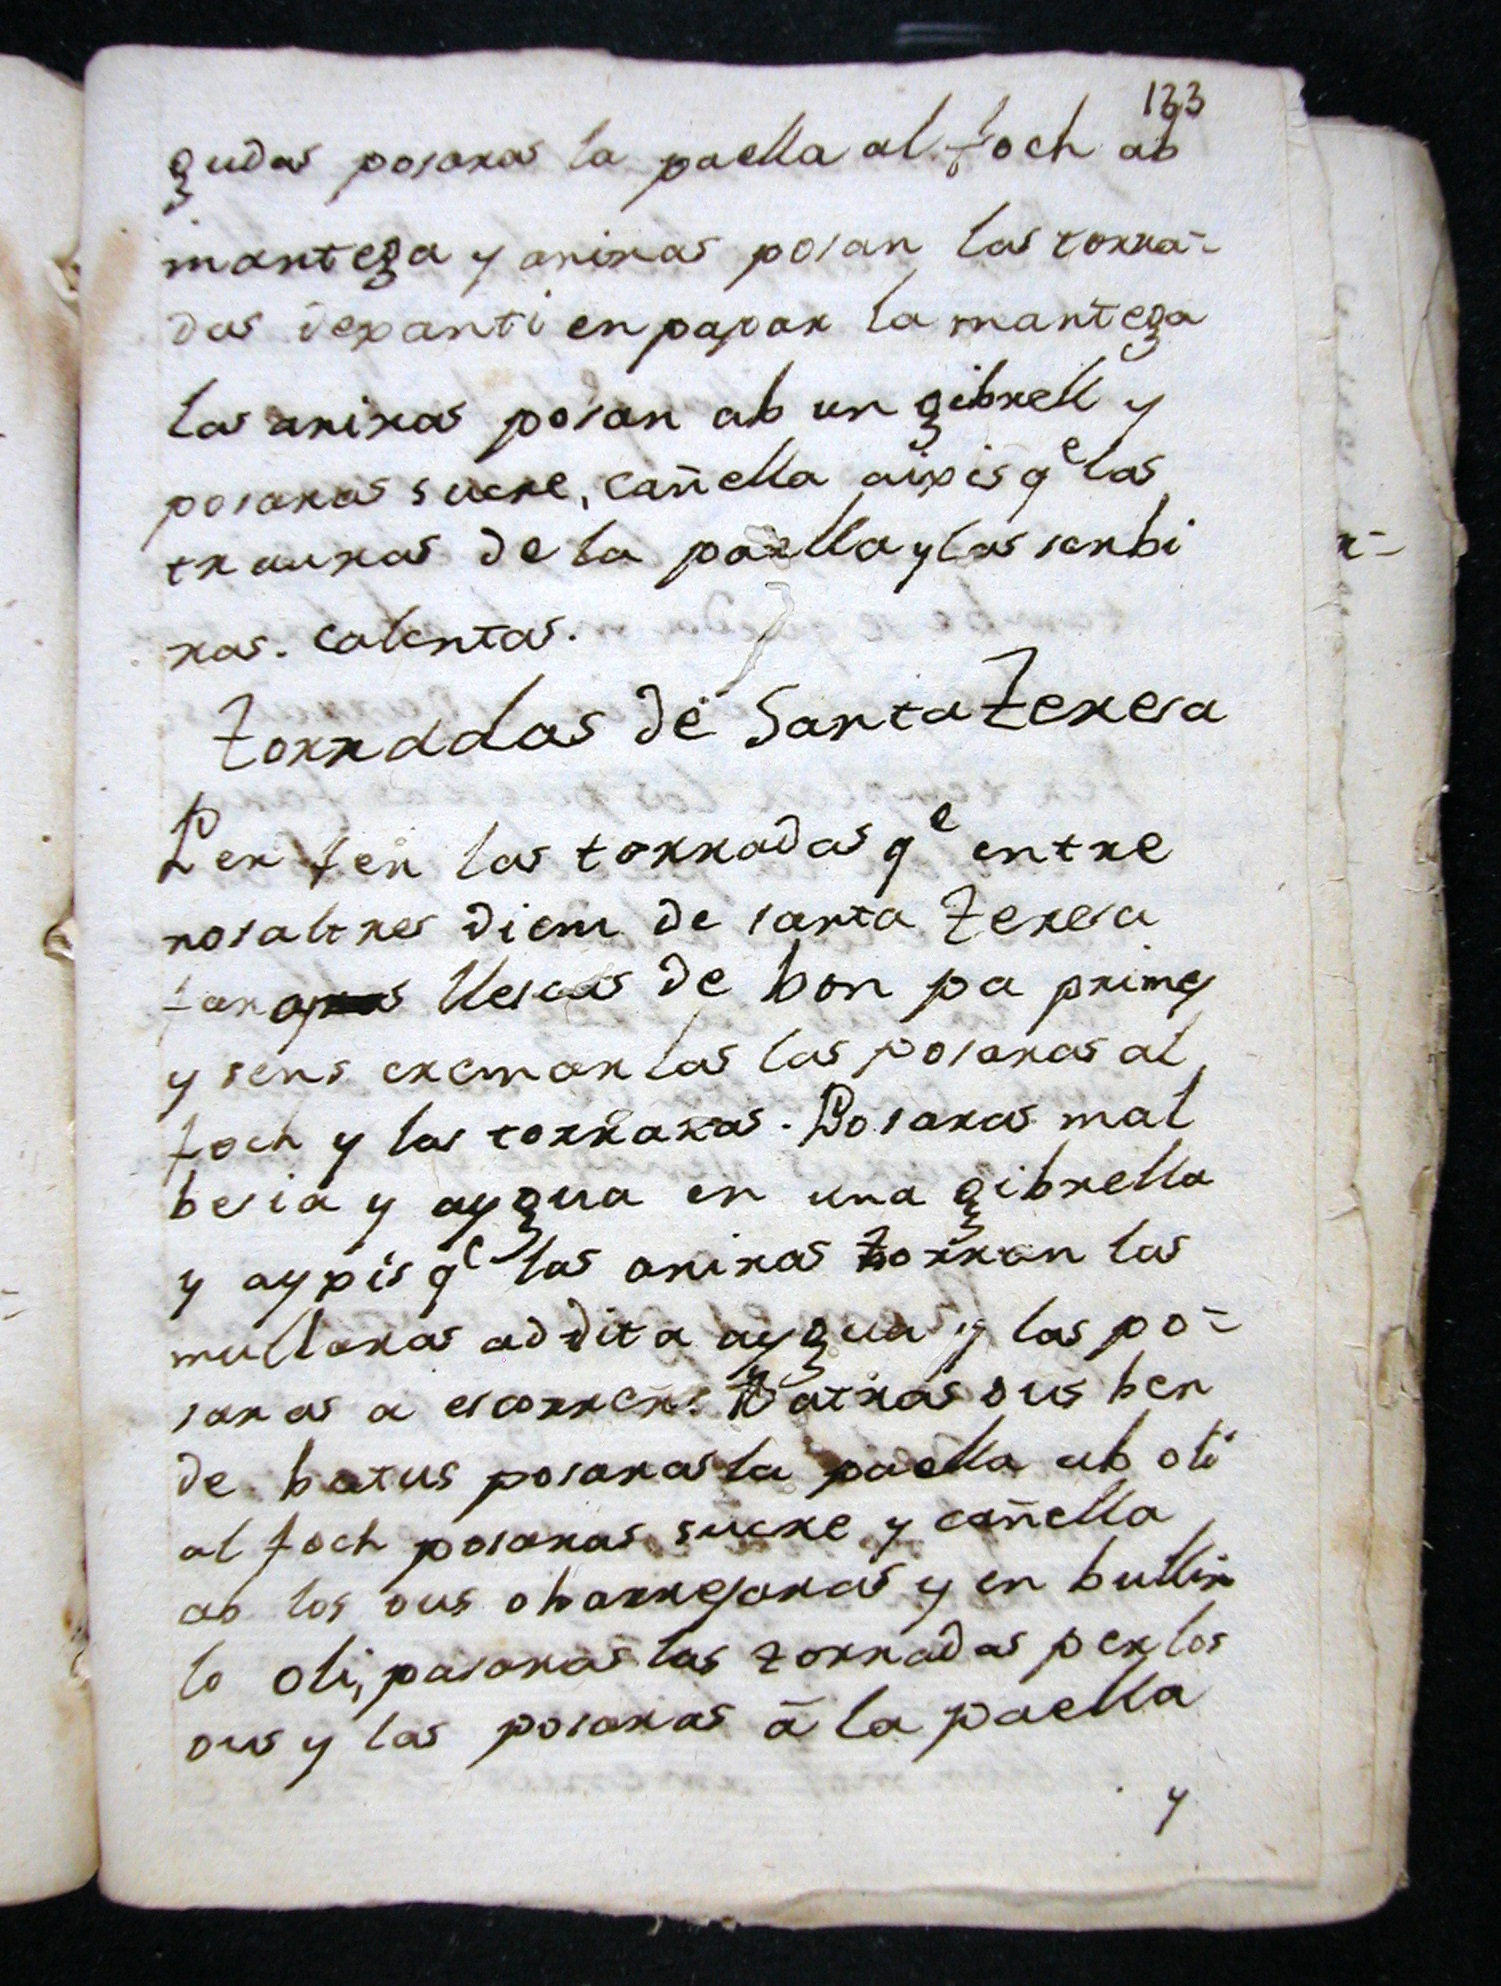 133
gudas posaras la paella al foch ab
mantega y aniras posan las torra-
das dexanti enpapar la mantega
las aniras posan ab un gibrell y
posaras sucre, cañella aixis qe las
trauras de la paella y las serbi
ras. calentas.
Torradas de Santa Teresa
Per fer las torradas qe entre
nosaltres diem de santa Teresa
llescas de bon pa prim y
y sens cremarlas las posaras al
foch y las torraras. Posaras mal
besia y aygua en una gibrella
y ayxis qe las aniras torran las
mullaras ab dita aygua y las po-
saras a escorrer. Batras ous ben
de batus posaras la paella ab oli
al foch posaras sucre y cañella
ab los ous o barrejaras y en bullir
lo oli, pasaras las torradas per los
ous y las posaras á la paella
y
r-